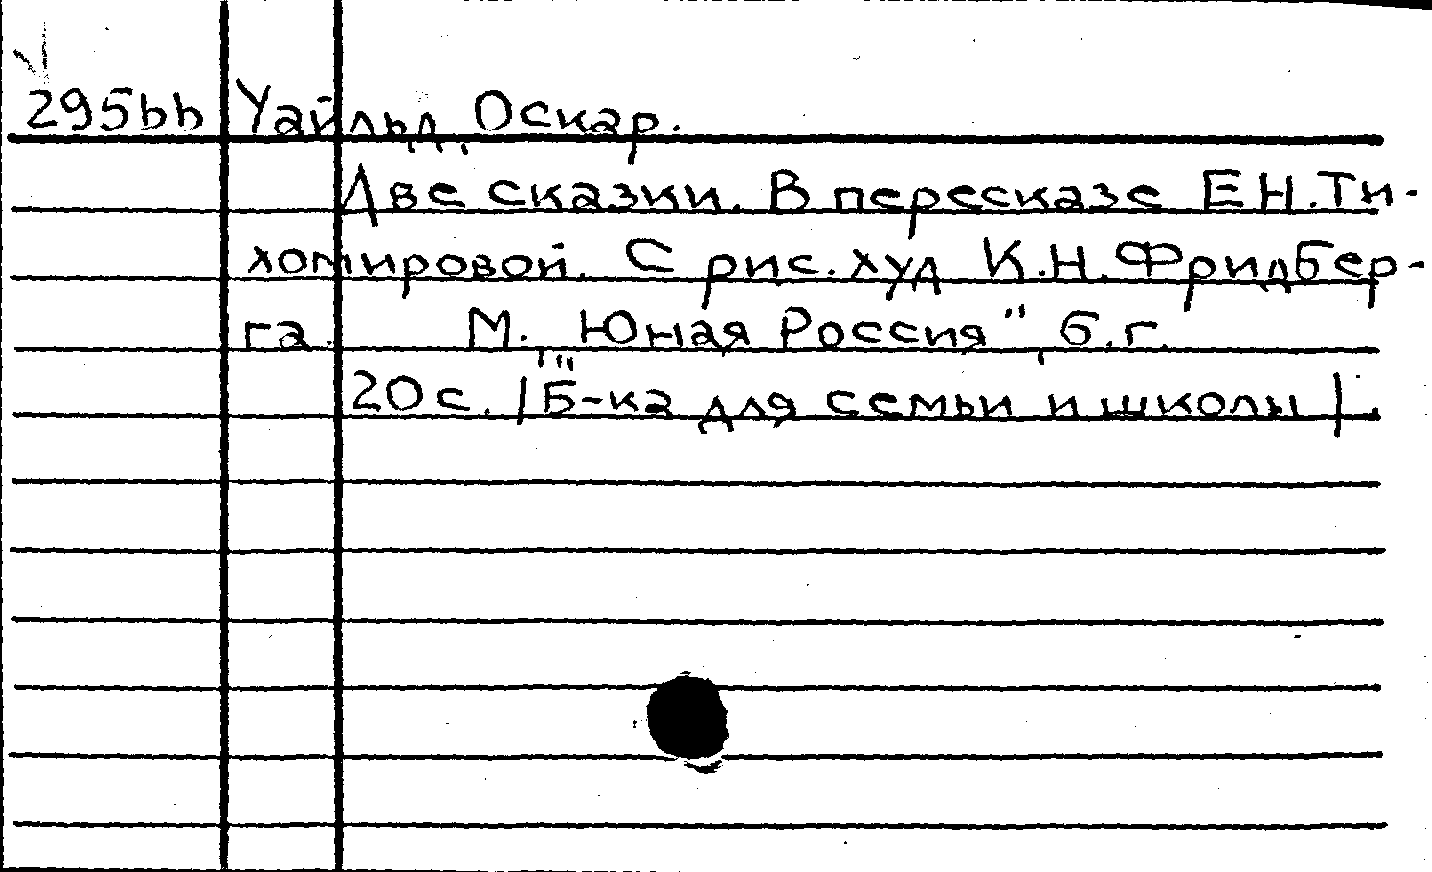 295bb Уайльд, Оскар.
Две сказки. В пересказе Е.Н.Ти-
хомировой. С рис. худ К.Н.Фридбер-
га. М. „Юная Россия", б.г.
20 с. /Б-ка для семьи и школы/.